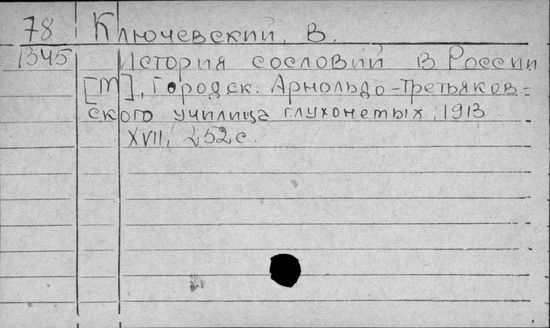 78 Ключевский, В.
1345 История сословий в России
[М], Городск. Арнольдо-Третьяков-
ского училища глухонемых, 1913
XVII, 252 с.